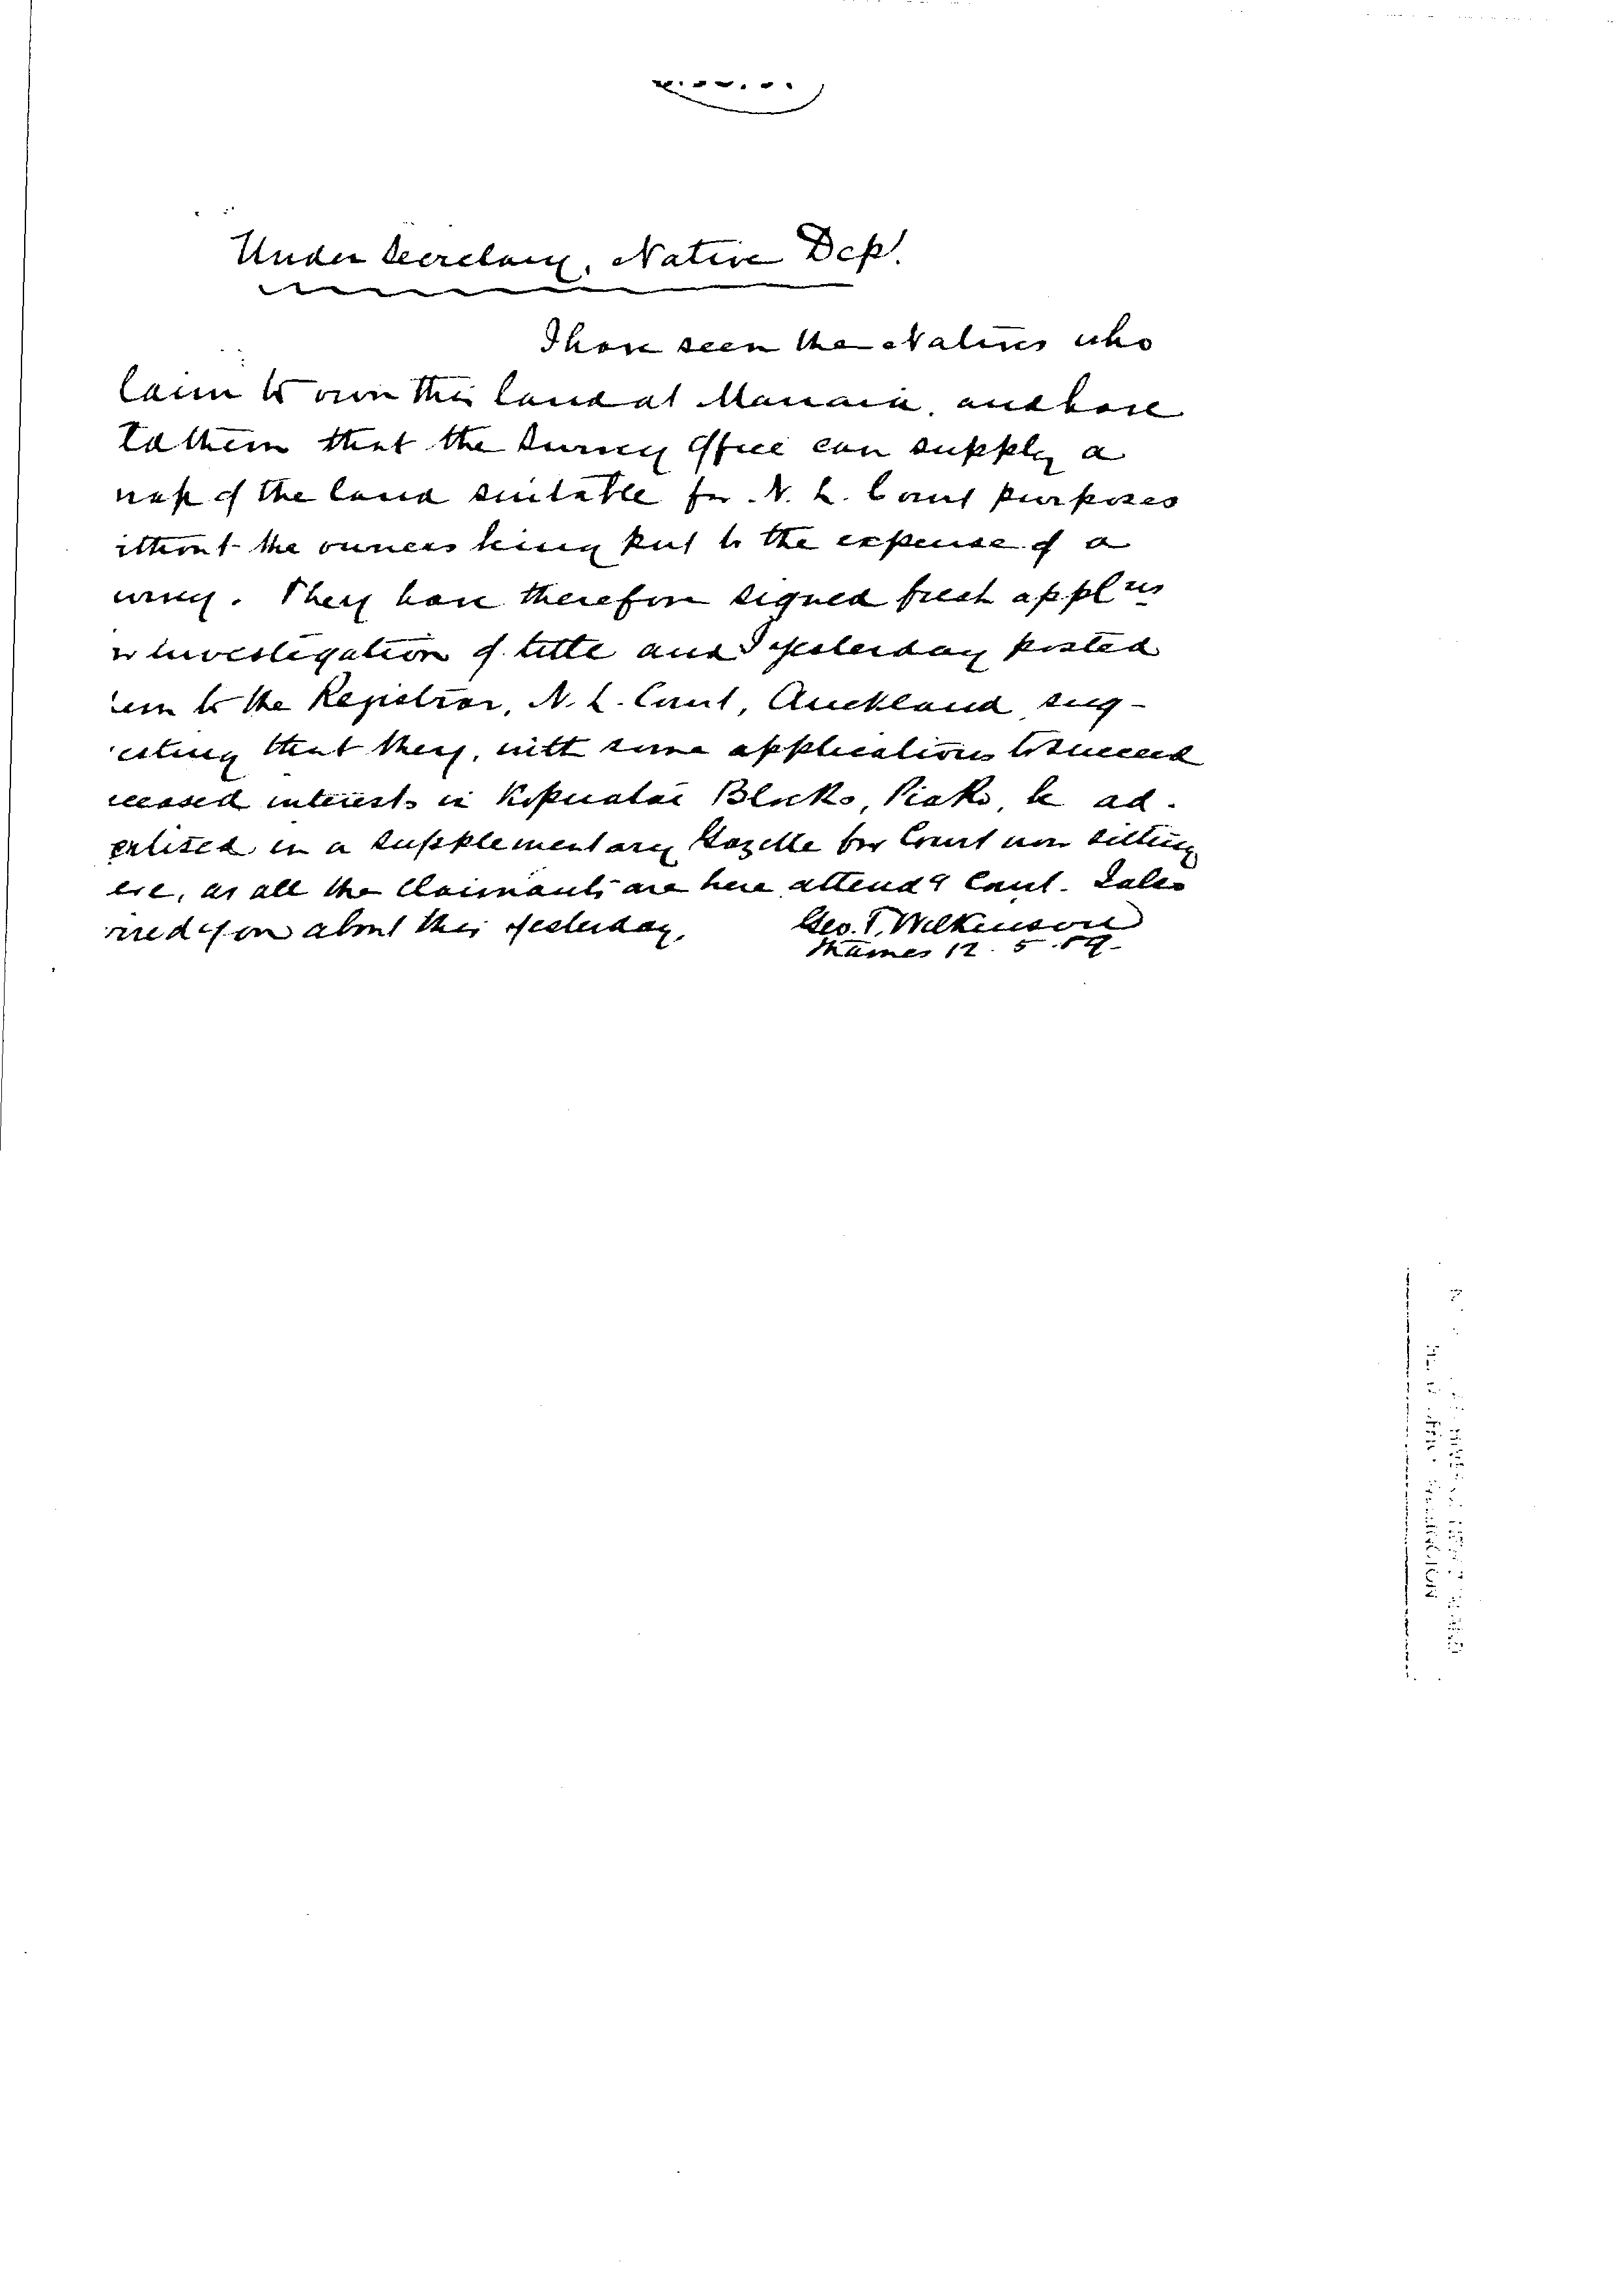 Under Secretary, Native Dept.
I have seen the Natives who
laim to own this land at Manaia, and have
told them that the Survey Office can supply a
map of the land suitable for N. L. Court purposes
ithout the owners being put to the expense of a
urvey. They have therefore signed fresh applns
or investigation of title and I yesterday posted
hem to the Registrar, N. L. Court, Auckland sug-
esting that they, with some applications to succeed
eceased interests in Kopuatai Blocks, Piako, be ad-
vertised in a Supplementary Gazette for Court now sitting
ere, as all the claimants are here attendg Court. I also
wired you about this yesterday.
Geo. T. Wilkinson
Thames 12.5.89